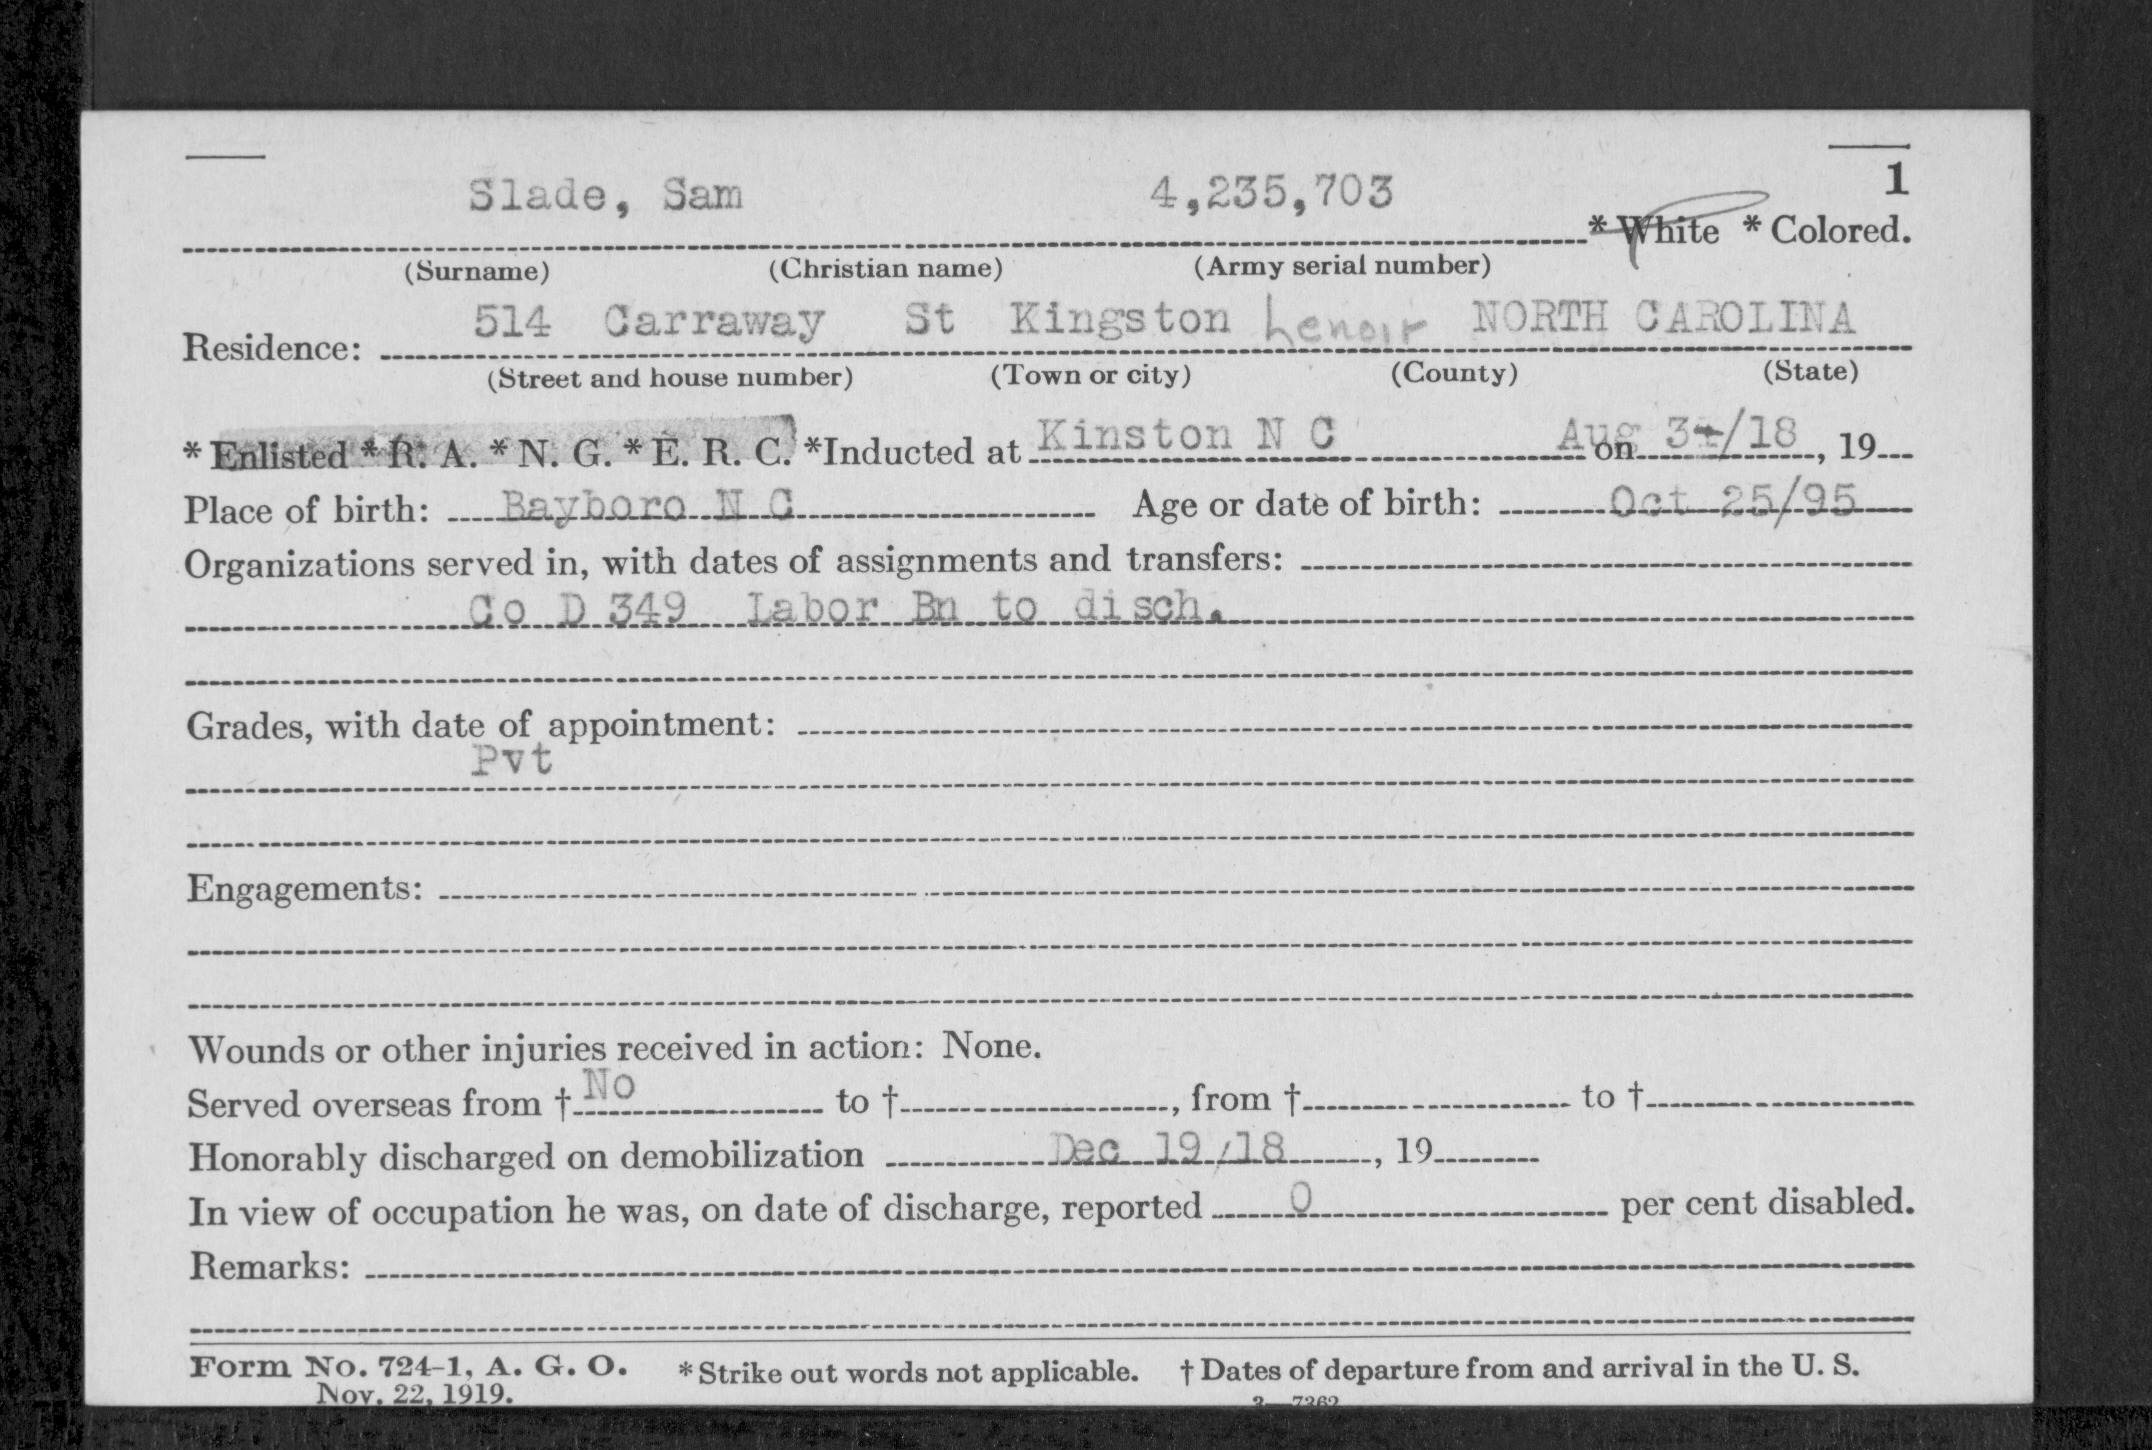 1
Slade, Sam 4,235,703 * White * Colored.
(Surname) (Christian name) (Army serial number)
Residence: 514 Carraway St Kingston Lenoir NORTH CAROLINA
(Street and house number) (Town or city) (County) (State)
* Enlisted * R. A. * N. G. * E. R. C. *Inducted at Kinston N C on Aug /18, 19
Place of birth: Bayboro N C Age or date of birth: Oct 25/95
Organizations served in, with dates of assignments and transfers:
Co D 349 Labor Bn to disch.
Grades, with date of appointment:
Pvt
Engagements:
Wounds or other injuries received in action: None.
Served overseas from † No to †, from † to †
Honorably discharged on demobilization Dec 19/18, 19
In view of occupation he was, on date of discharge, reported 0 per cent disabled.
Remarks:
Form No. 724-1, A. G. O. * Strike out words not applicable. † Dates of departure from and arrival in the U. S.
Nov. 22, 1919. 3—7362